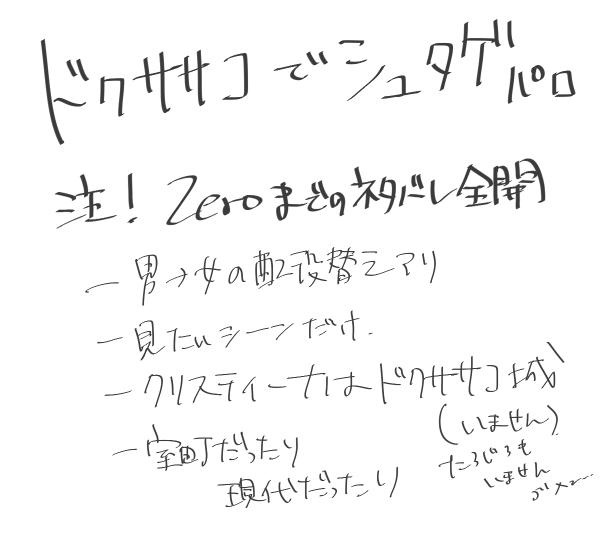 ドクササコでシュタゲパロ
注！Zeroまでのネタバレ全開
ー男→女の配役替えアリ
ー見たいシーンだけ.
ークリスティーナはドクササコ城
(いません)
ー室町だったり
現代だったり
たろじろも
いません
ゴメン…